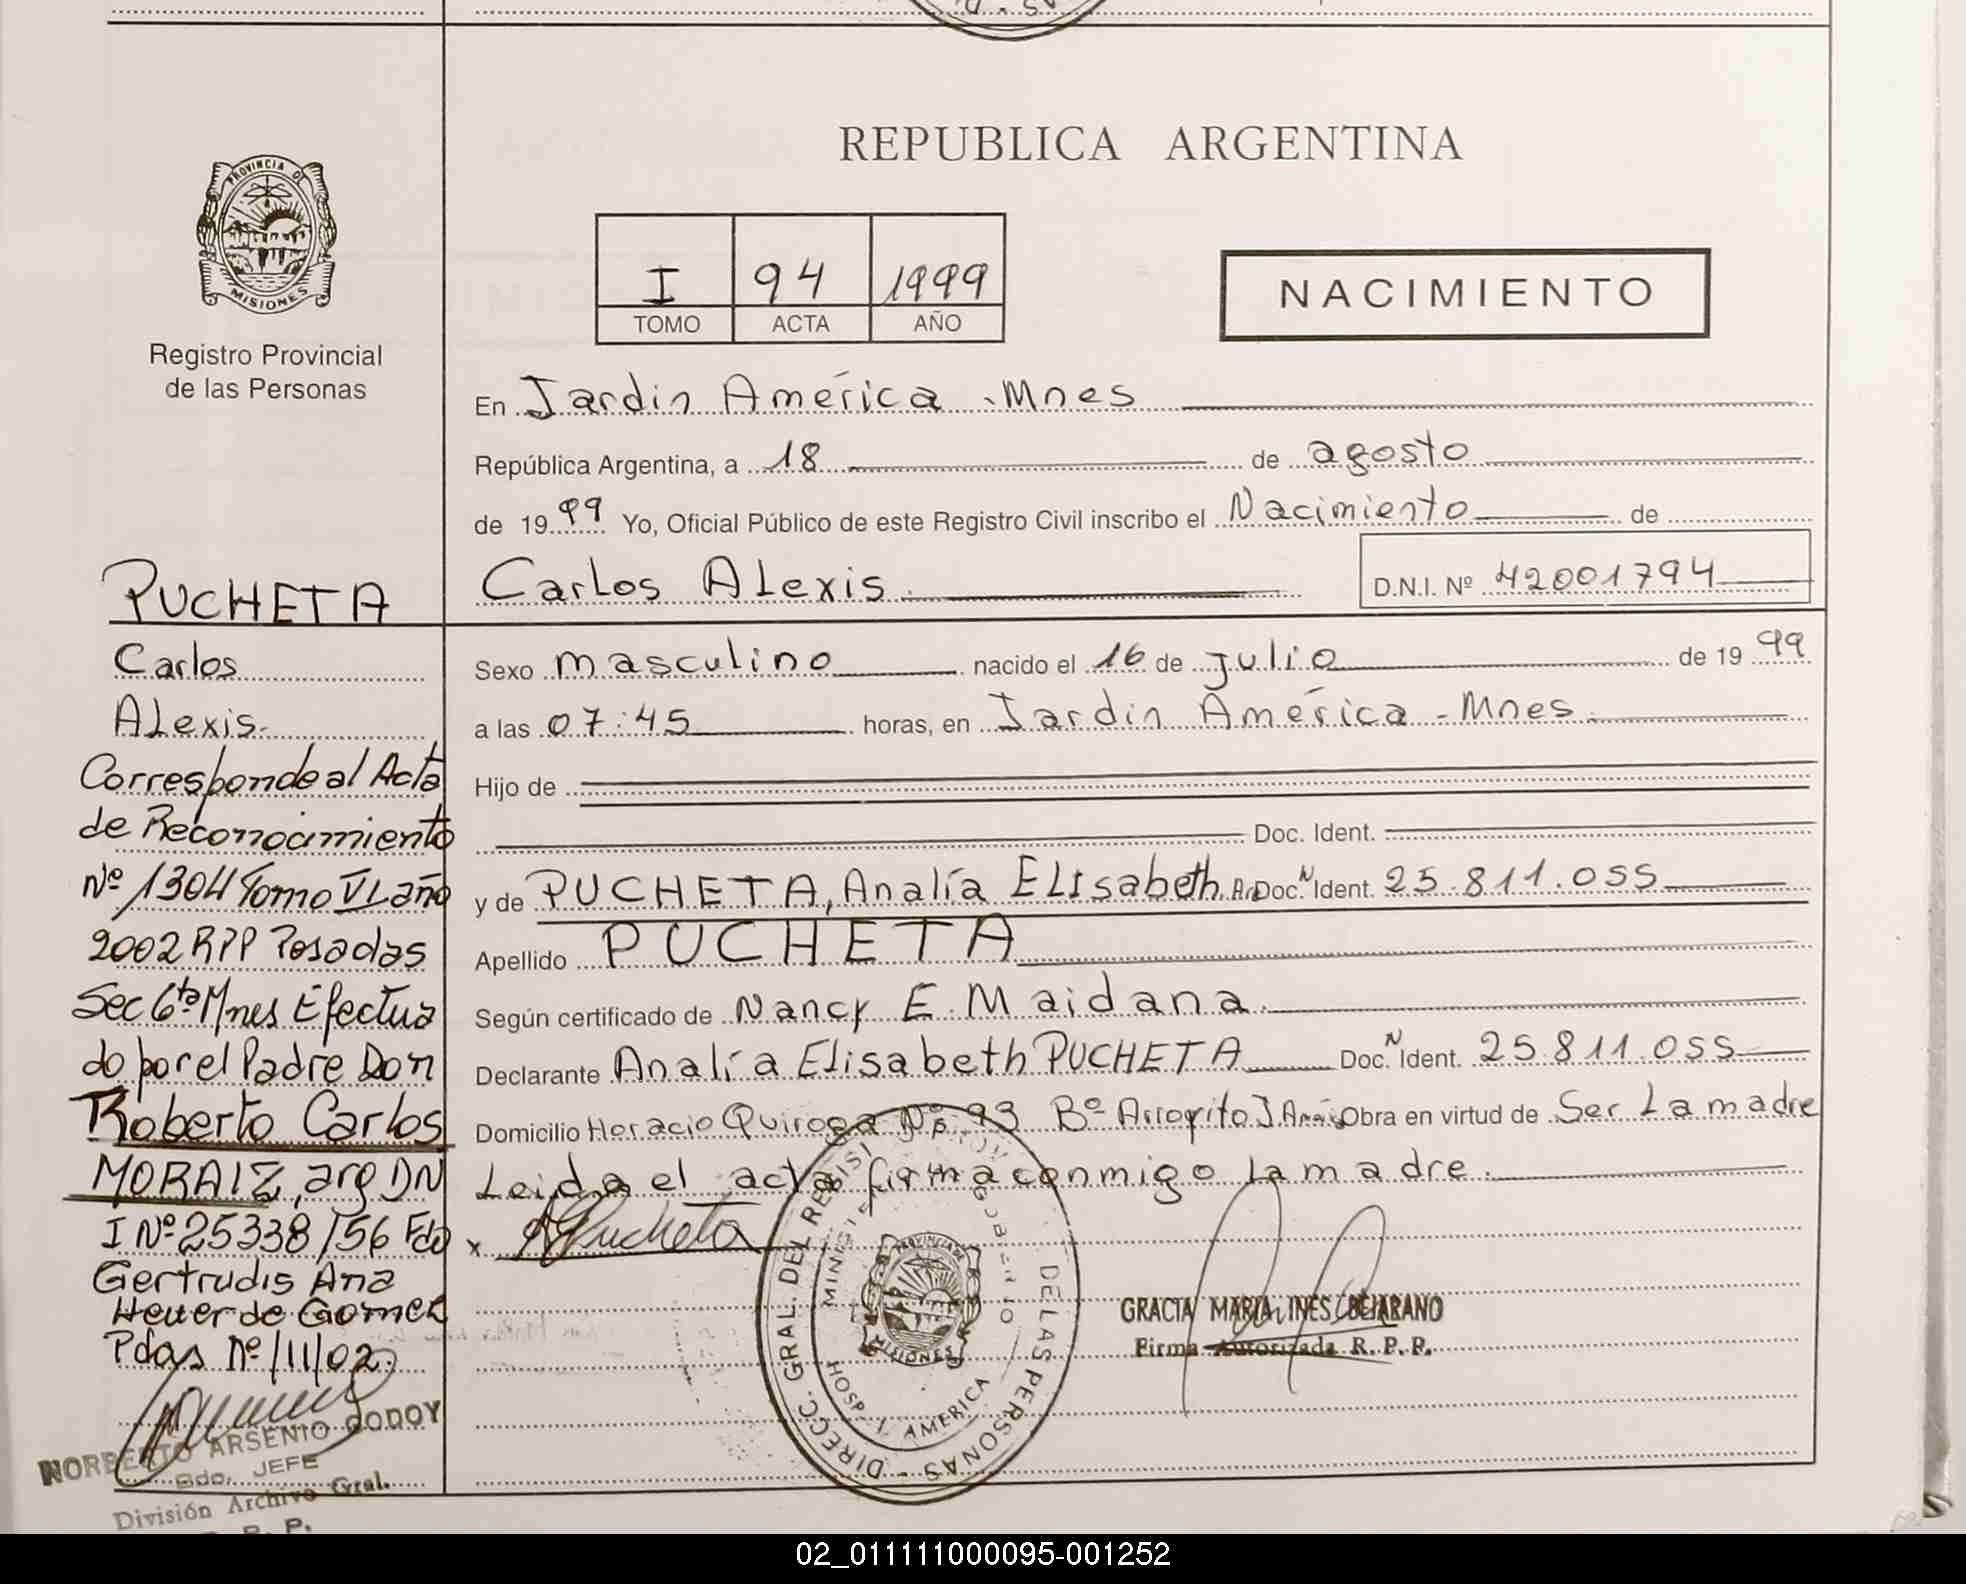 REPUBLICA ARGENTINA
PROVINCIA DE
MISIONES
Registro Provincial
de las Personas
I 94 1999
TOMO ACTA AÑO
NACIMIENTO
En Jardin América - Mnes
República Argentina, a 18 de agosto
de 1999 Yo, Oficial Público de este Registro Civil inscribo el Nacimiento de
Carlos ALexis D.N.I. Nº 42001794
Sexo masculino nacido el 16 de julio de 1999
a las 07:45 horas, en Jardin América - Mnes
Hijo de
Doc. Ident.
y de PUCHETA, Analía ELisabeth Ar Doc. N Ident. 25.811.055
Apellido PUCHETA
Según certificado de Nancy E. Maidana
Declarante Analía Elisabeth PUCHETA Doc. N Ident. 25.811.055
Domicilio Horacio Quiroga Nº 93 Bº Arroyito J. Obra en virtud de Ser La madre
Leida el acta firma conmigo La madre.
x APucheta
GRACIA MARIA INES BEJARANO
Firma Autorizada R. P. P.
DIRECC. GRAL. DEL REGIST DE LAS PERSONAS
MINISTE GOBIERNO
HOSP. J. AMERICA
PROVINCIA DE
MISIONES
PUCHETA
Carlos
ALexis.
Corresponde al Acta
de Reconocimiento
Nº 1304 Tomo VI año
2002 RPP Posadas
Sec 6ta Mnes Efectua
do por el Padre Don
Roberto Carlos
MORAIZ, arg DN
I Nº 25338156 Fdo
Gertrudis Ana
Heuer de Gomez
Pdas Nº/11/02.
NORBERTO ARSENIO GODOY
Sdo. JEFE
División Archivo Gral.
R. P. P.
02_011111000095-001252